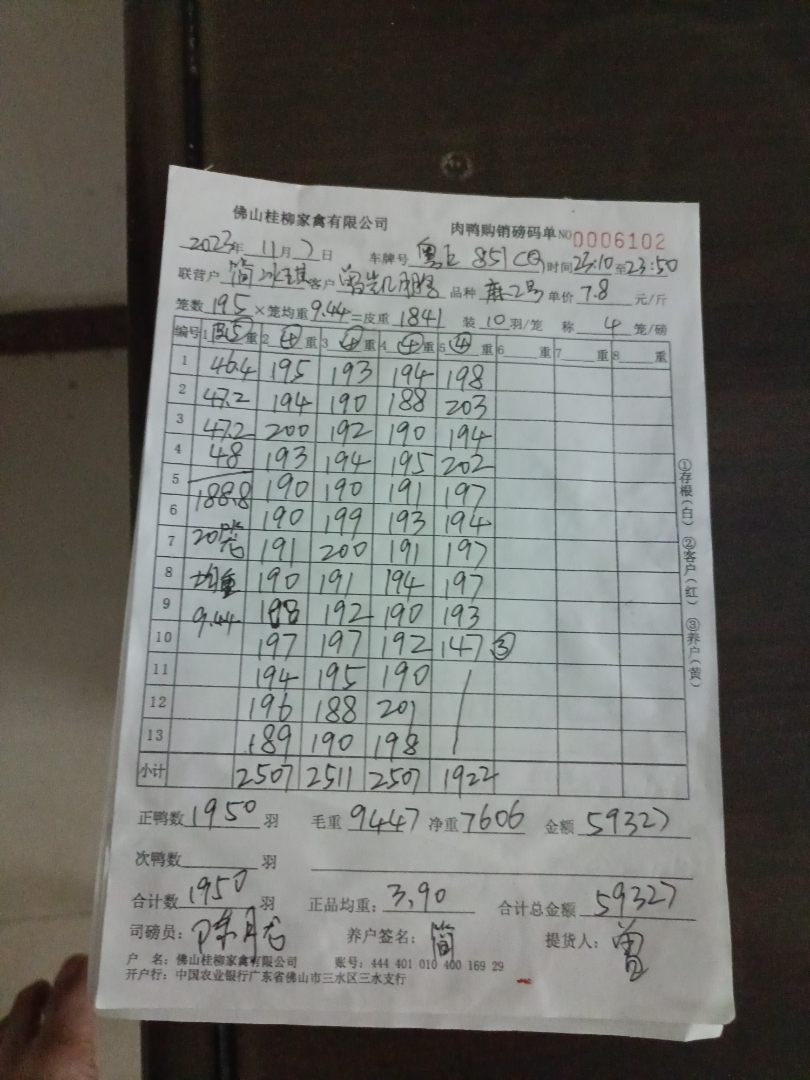 佛山桂柳家禽有限公司 肉鸭购销磅码单 NO 0006102
2023年 11月 2日 车牌号 粤E 851CQ 时间 23:10 至 23:50
联营户 简冰琪 客户 曾 品种 麻2号 单价 7.8 元/斤
笼数 195 ×笼均重 9.44 =皮重 1841 装 10 羽/笼 称 4 笼/磅
编号 1 ⑤ 重 2 ④ 重 3 ④ 重 4 ④ 重 5 ④ 重 6 重 7 重 8 重
1 46.4 195 193 194 198
2 47.2 194 190 188 203
3 47.2 200 192 190 194
4 48 193 194 195 202
5 188.8 190 190 191 197
6 190 199 193 194
7 20笼 191 200 191 197
8 均重 190 191 194 197
9 9.44 188 192 190 193
10 197 197 192 147 ③
11 194 195 190 /
12 196 188 201 /
13 189 190 198 /
小计 2507 2511 2507 1922
①存根(白) ②客户(红) ③养户(黄)
正鸭数 1950 羽 毛重 9447 净重 7606 金额 59327
次鸭数 羽
合计数 1950 羽 正品均重: 3.90 合计总金额 59327
司磅员: 陈月龙 养户签名: 简 提货人: 曾
户 名: 佛山桂柳家禽有限公司 账号: 444 401 010 400 169 29
开户行: 中国农业银行广东省佛山市三水区三水支行